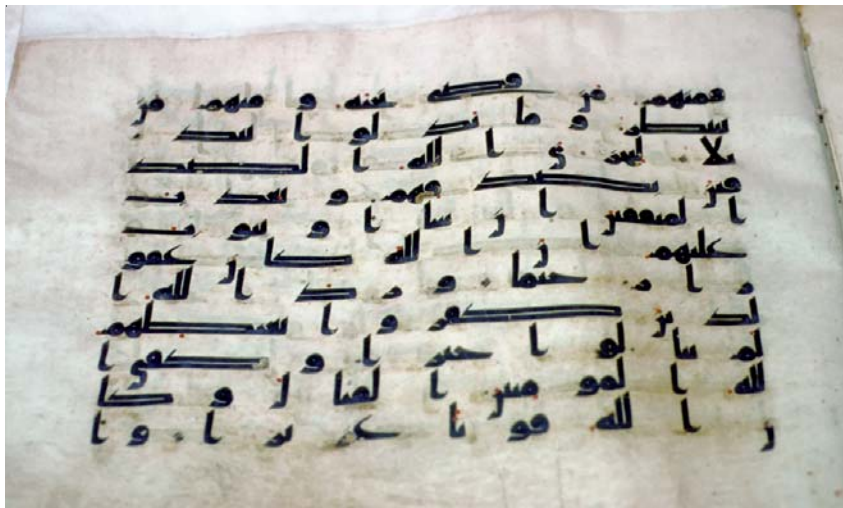 فمنهم من قضى نحبه و منهم من
ينتظر و ما بدلوا تبد يـ
لا ليجزي الله الصد
قين بصدقهم و يعذب
المنفقين ان شا او يتوب
عليهم ان الله كان غفو
را رحيما و رد الله ا
لذين كفروا بغيظهم
لم ينالوا خيرا و كفى ا
لله المومنين القتال و كا
ن الله قويا عزيزا و ا